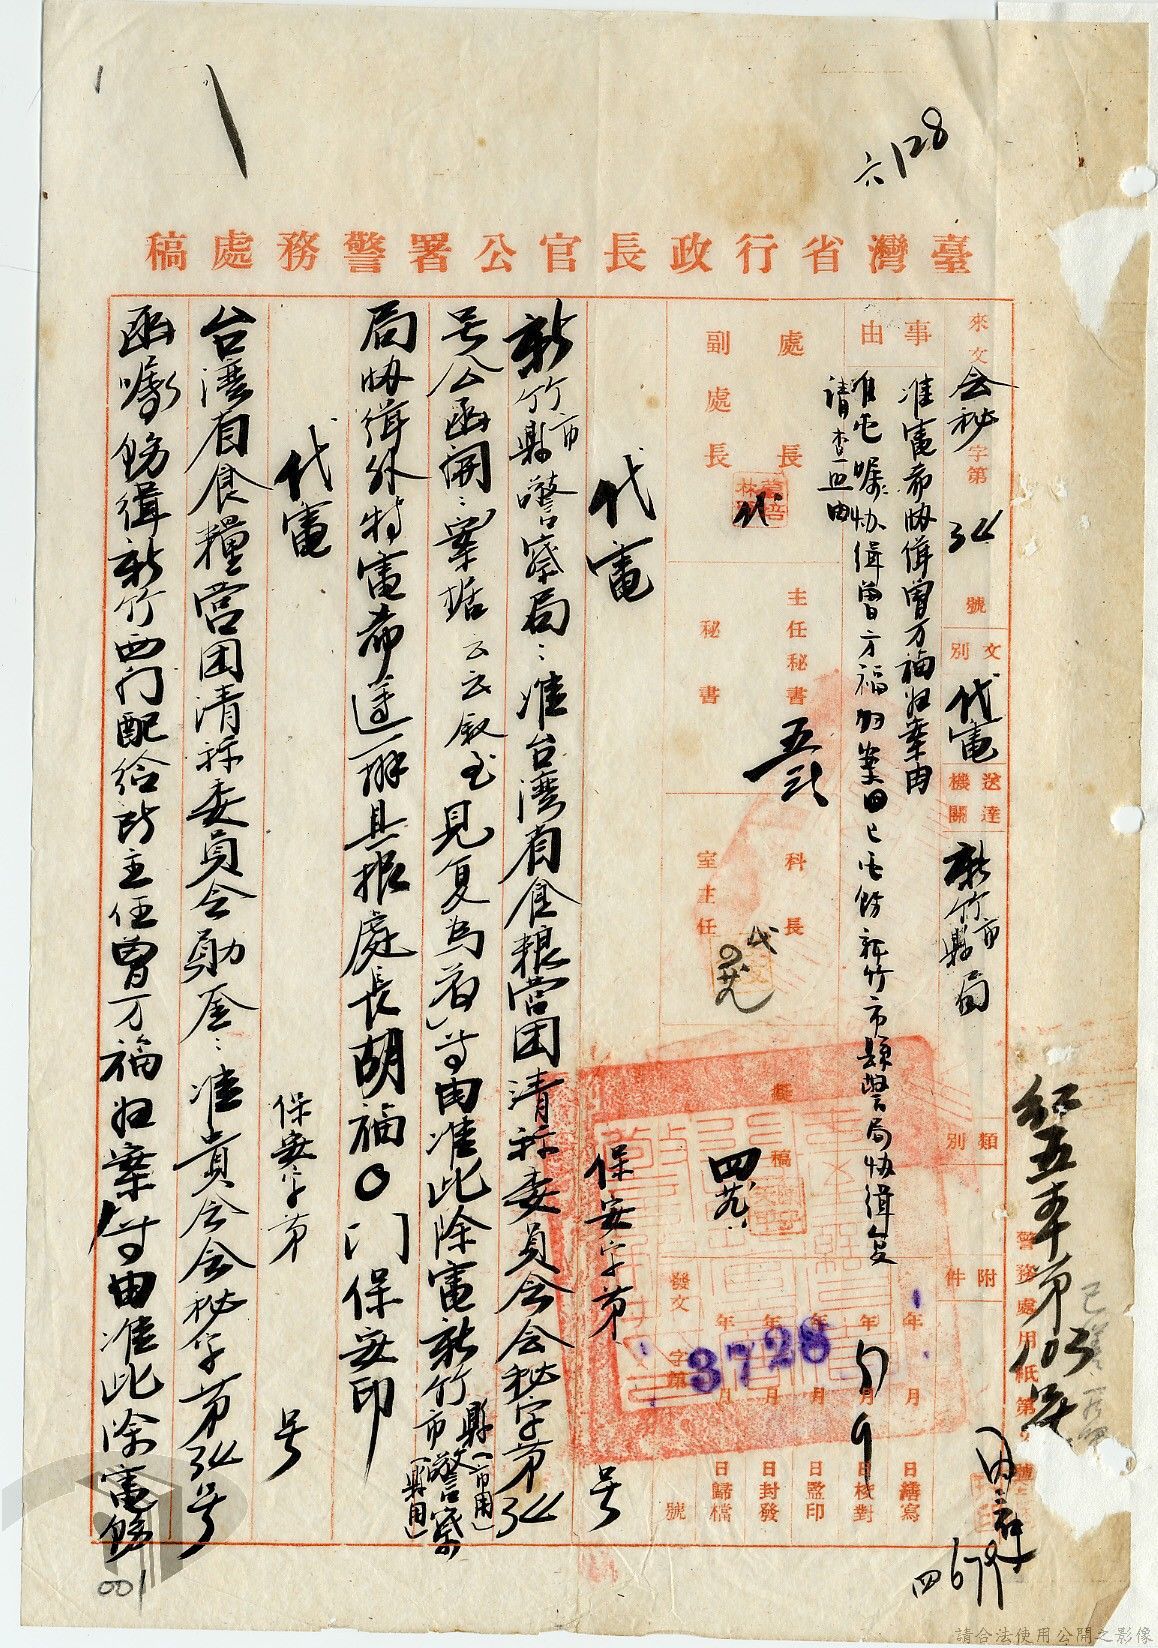 六128
臺灣省行政長官公署警務處稿
來文 会秘 字第 34 號
文別 代電
送達機關 新竹市縣局
類別
附件
事由
准電希协緝曾万福归案由
准电嘱协緝曾万福归案由已电飭新竹市縣警局协緝复
請查照由
處長
副處長
代
主任秘書
秘書
科長
室主任
代
擬稿
年 月 日繕寫
年 月 日核對
年 月 日監印
年 月 日封發
年 月 日歸檔
發文 字第 號
3728
代電
保安字第 号
新竹市縣警察局：准台湾省食粮営团清理委員会会秘字第34
号公函開：「案据云云叙至見复為荷」等由准此除電新竹縣（市用）市（縣用）警察
局协緝外特電希遵辦具报處長胡福〇门保安印
代電
保安字第 号
台湾省食糧営团清理委員会勛鉴：准貴会会秘字第34号
函嘱飭緝新竹西门配給所主任曾万福归案等由准此除電飭
警務處用紙第 號
四679
001
請合法使用公開之影像